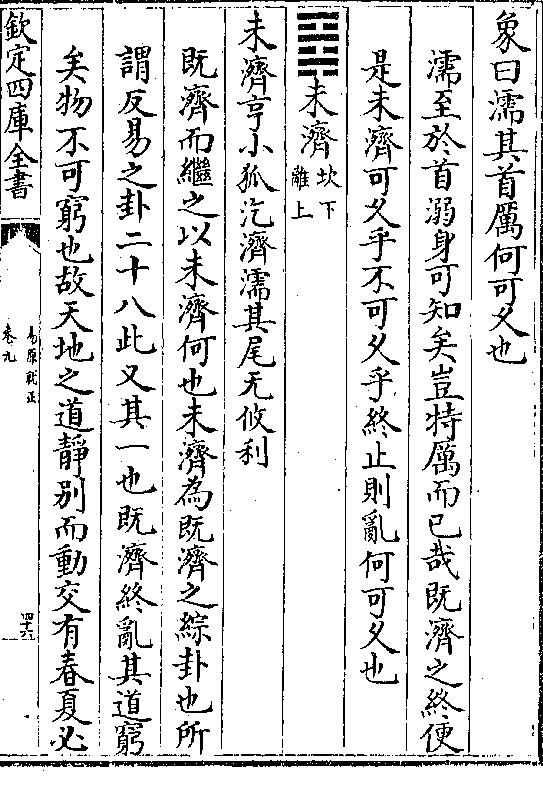 象曰濡其首厲何可久也
濡至於首溺身可知矣豈特厲而已哉既濟之終便
是未濟可久乎不可久乎終止則亂何可久也
䷿未濟坎下離上
未濟亨小狐汔濟濡其尾无攸利
既濟而繼之以未濟何也未濟為既濟之綜卦也所
謂反易之卦二十八此又其一也既濟終亂其道窮
矣物不可窮也故天地之道靜别而動交有春夏必
欽定四庫全書
易原就正
卷九
四十六